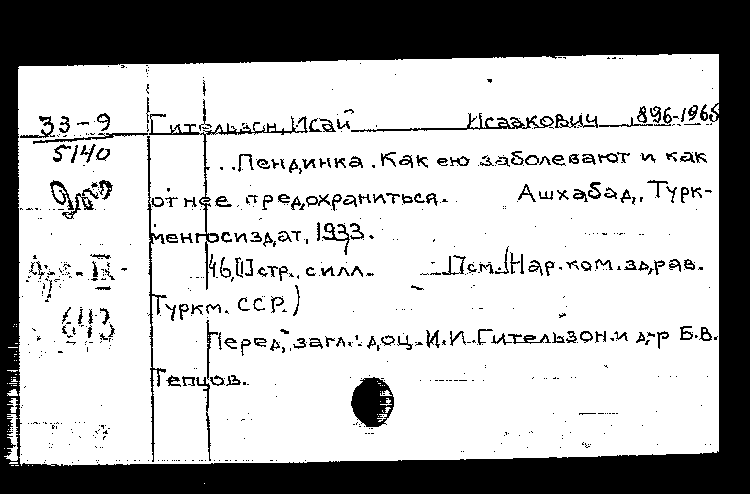 33-9
5140
Гительзон, Исай Исаакович, 1896-1965
...Пендинка. Как ею заболевают и как
от нее предохраниться. Ашхабад, Турк-
менгосиздат, 1933.
46,[1] стр., с илл. (Нар. ком. здрав.
Туркм. ССР.)
Перед загл.: доц. И.И. Гительзон и д-р Б.В.
Тепцов.
643